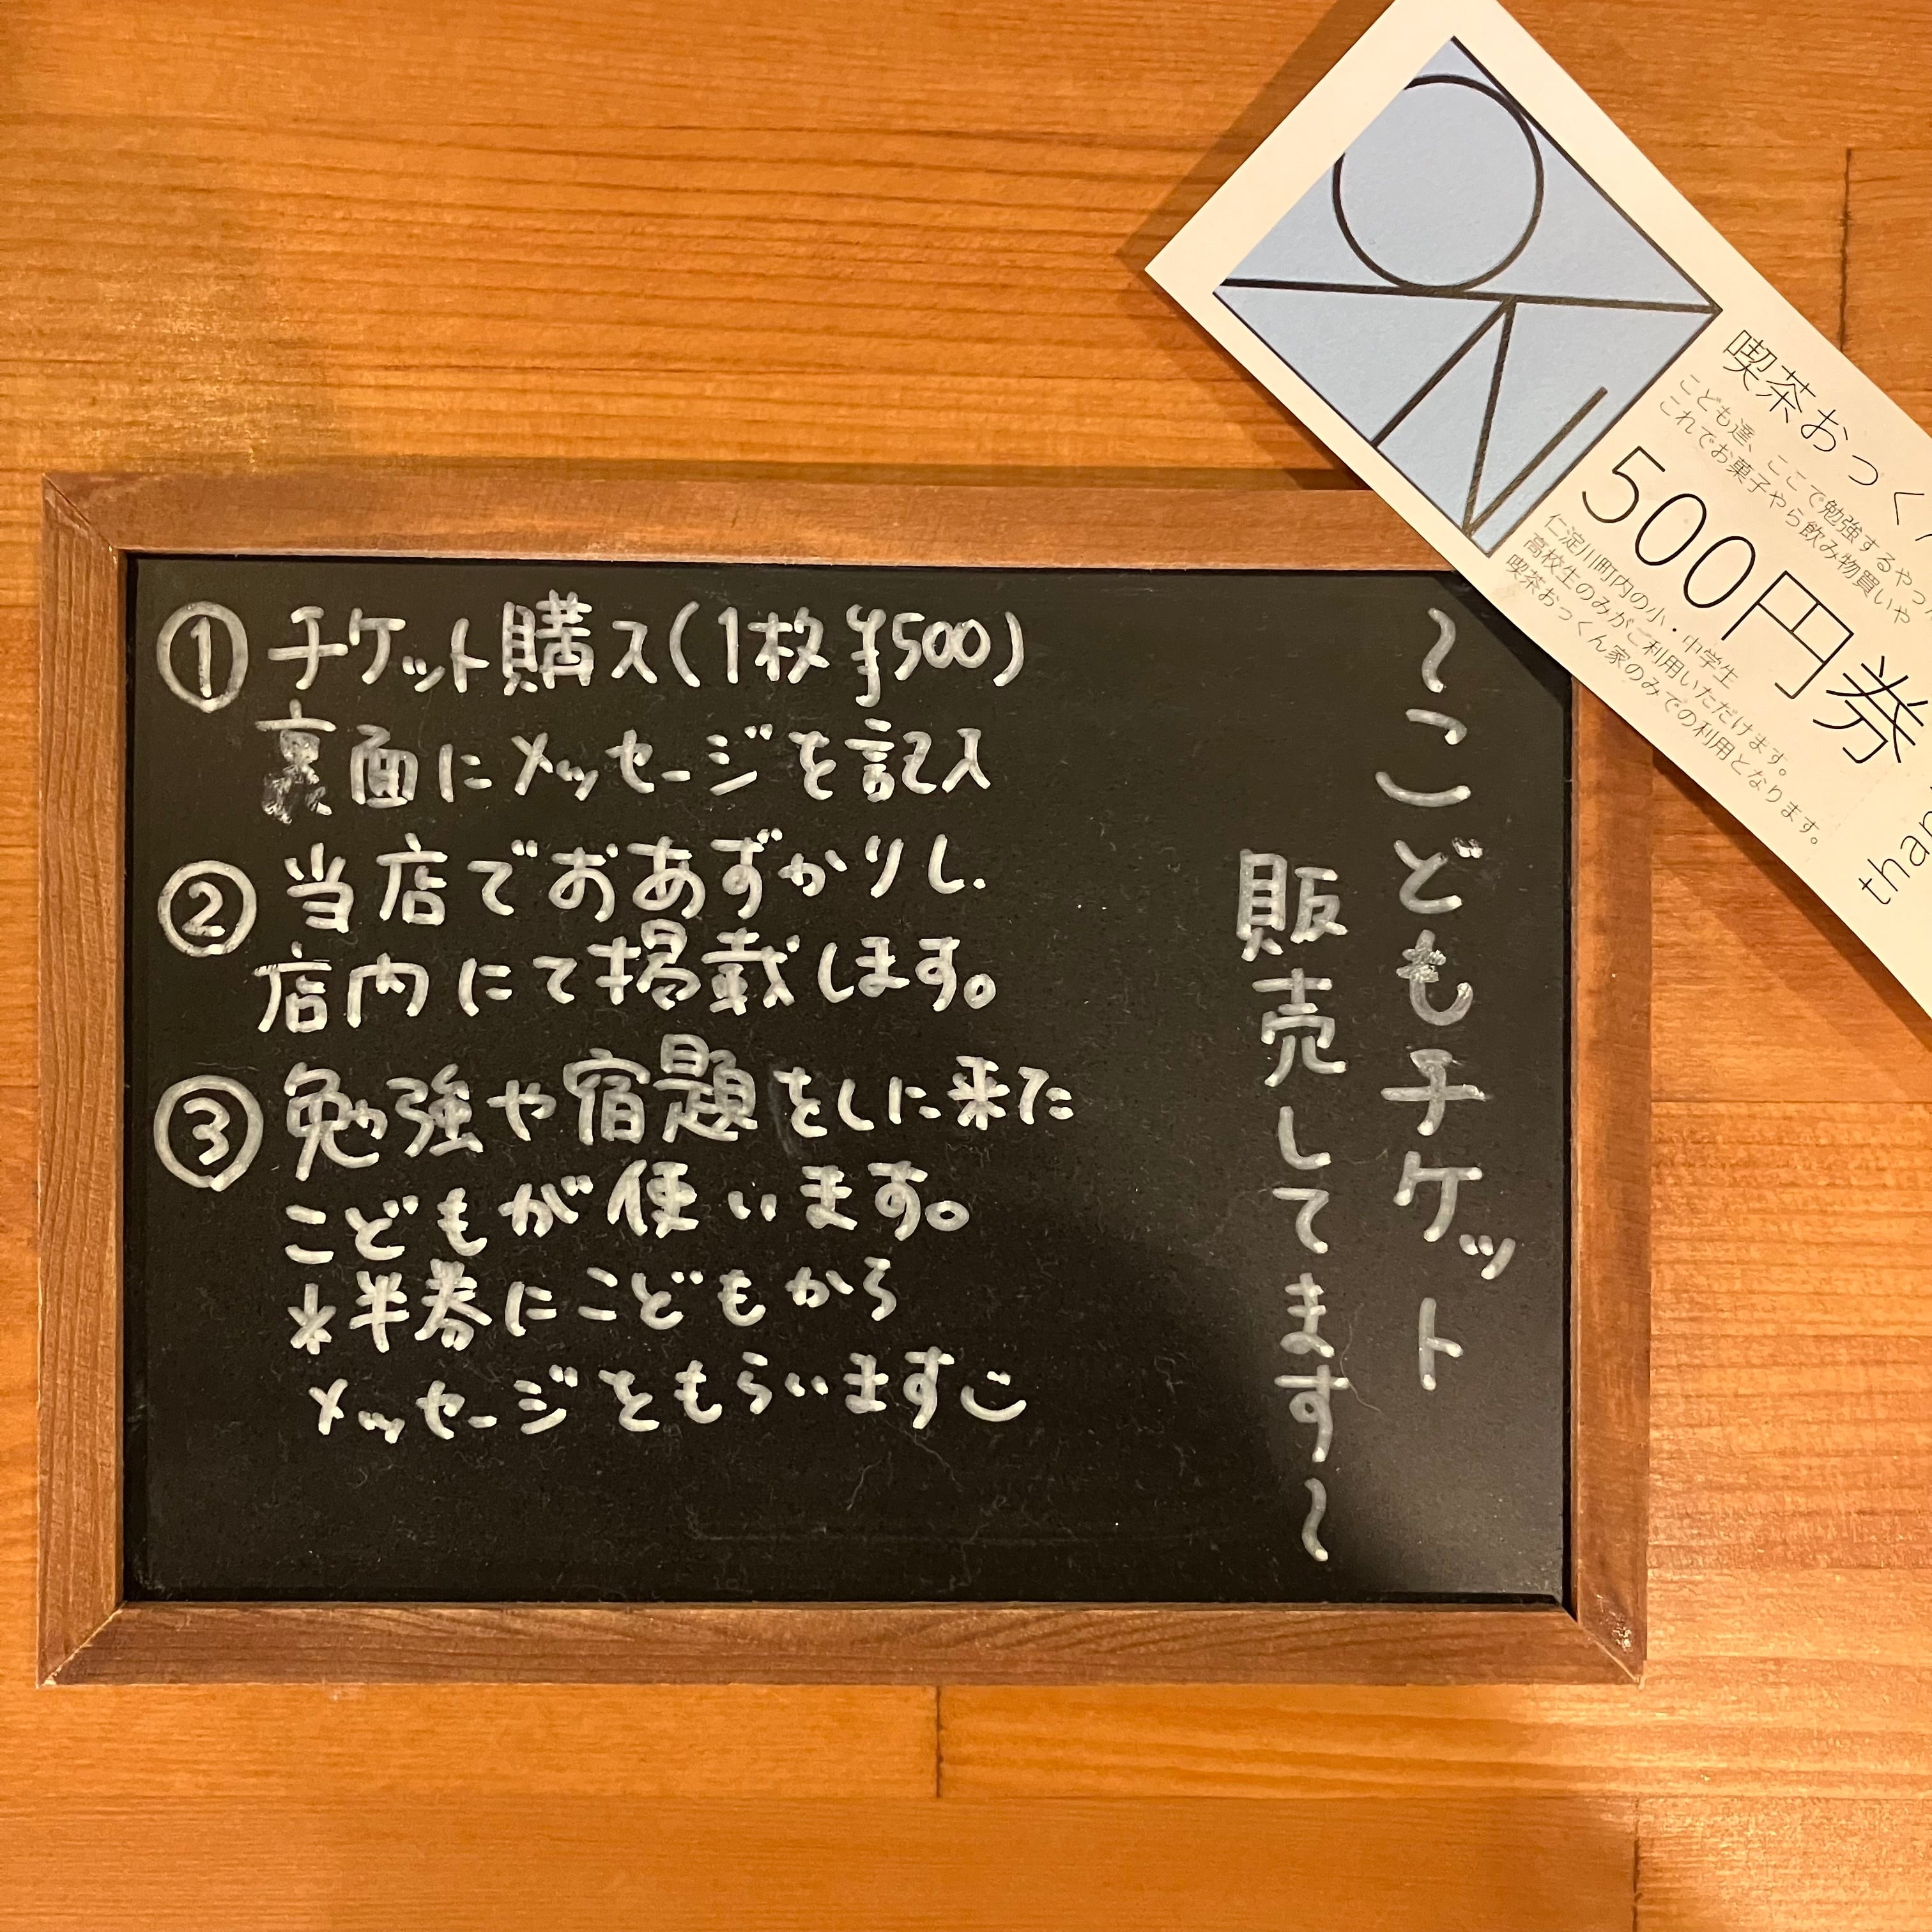 〜こどもチケット
販売してます〜
① チケット購入(1枚¥500)
裏面にメッセージを記入
② 当店でおあずかりし、
店内にて掲載します。
③ 勉強や宿題をしに来た
こどもが使います。
*半券にこどもから
メッセージをもらいます
ON
喫茶おっく
こども達、ここで勉強するやっ
これでお菓子やら飲み物買いや
500円券
仁淀川町内の小・中学生
高校生のみがご利用いただけます。
喫茶おっくん家のみでの利用となります。